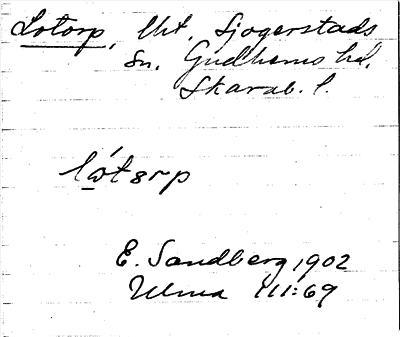 Lotorp, Uht. Sjogerstads
sn. Gudhems hd.
Skarab. l.
E. Sandberg 1902
Ulma 111:69